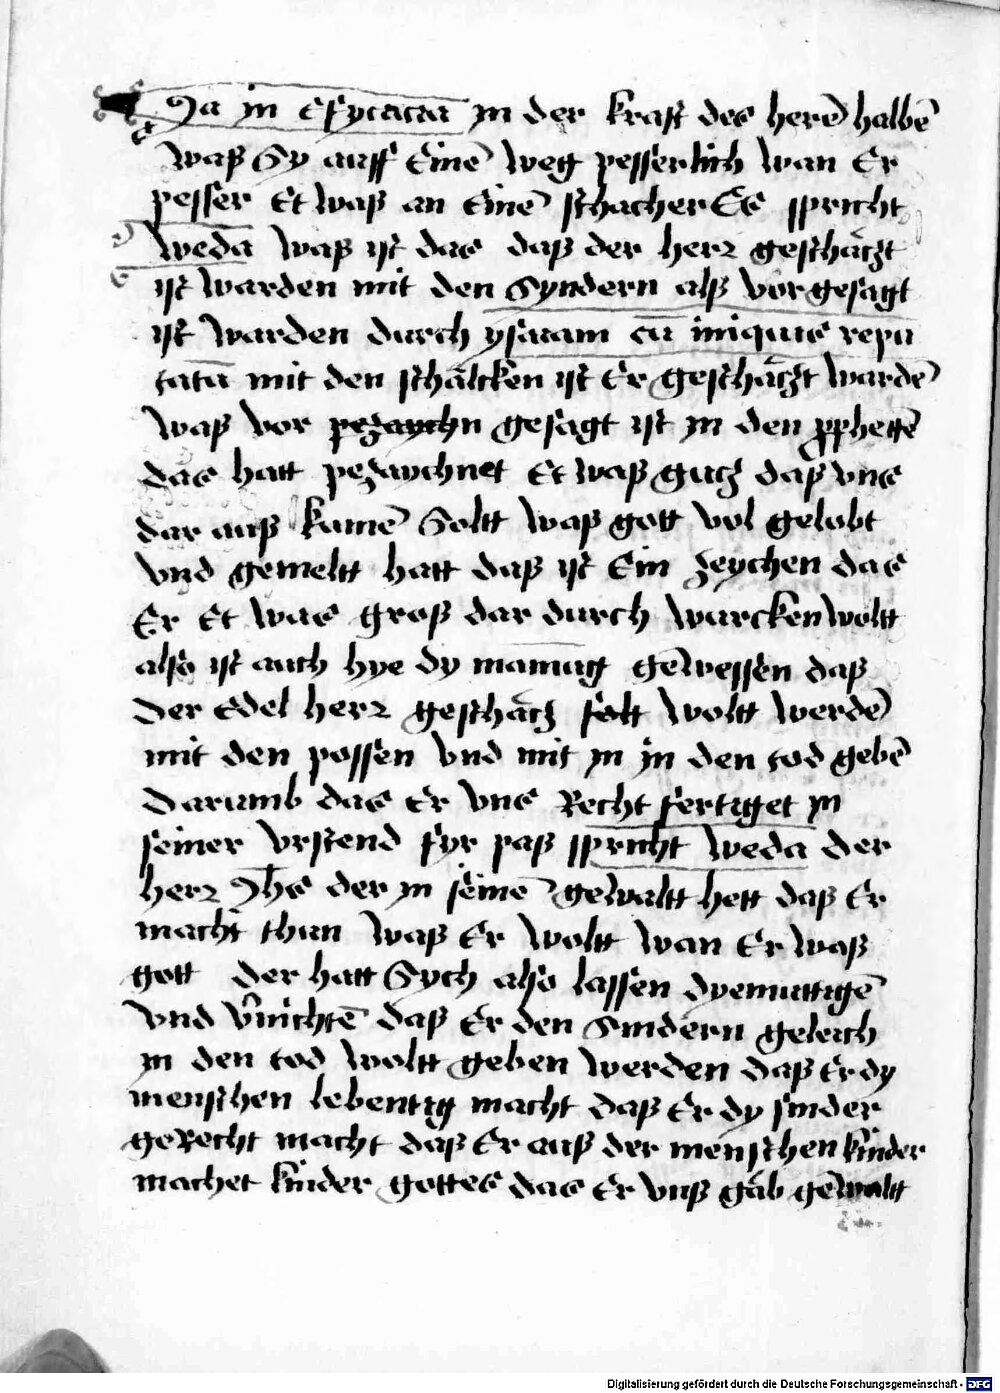 Ja in efycacia in der kraft des herē halbē
waß Sy auff Einē weg pesserlich wan Er
pesser Et waß an Einē schacher Es spricht
weda waß ist das daß der herr geschäczt
ist warden mit den Syndern alß vor gesagt
ist warden durch ysaiam cū iniquis repu
tatū mit den schälcken ist Er geschäczt wardē
waß vor pezaychn gesagt ist in den pphettē
das hatt pezaychnet Et waß gucz daß vns
dar auß kumē Soltt waß gott vol gelobt
vnd gemeltt hatt daß ist Ein zeychen das
Er Et was groß dar durch wurcken woltt
also ist auch hye dy mainūg gewessen daß
der edel herr geschäcz woltt werdē
mit den possen vnd mit in in den tod gebē
darumb das Er vns Recht fertiget in
seiner vrstend fyr paß spricht weda der
herr Jhs der in seinē gewaltt hett daß Er
macht thun waß Er woltt wan Er waß
gott der hatt Sych also lassen dyemuttigē
vnd v̄nichtē daß Er den Sindern geleich
in den tod woltt geben werden daß Er dy
menschen lebentig macht daß Er dy sinder
geRecht macht daß Er auß der menschen kinder
machet kinder gottes das Er vnß gäb gewaltt
Digitalisierung gefördert durch die Deutsche Forschungsgemeinschaft - DFG